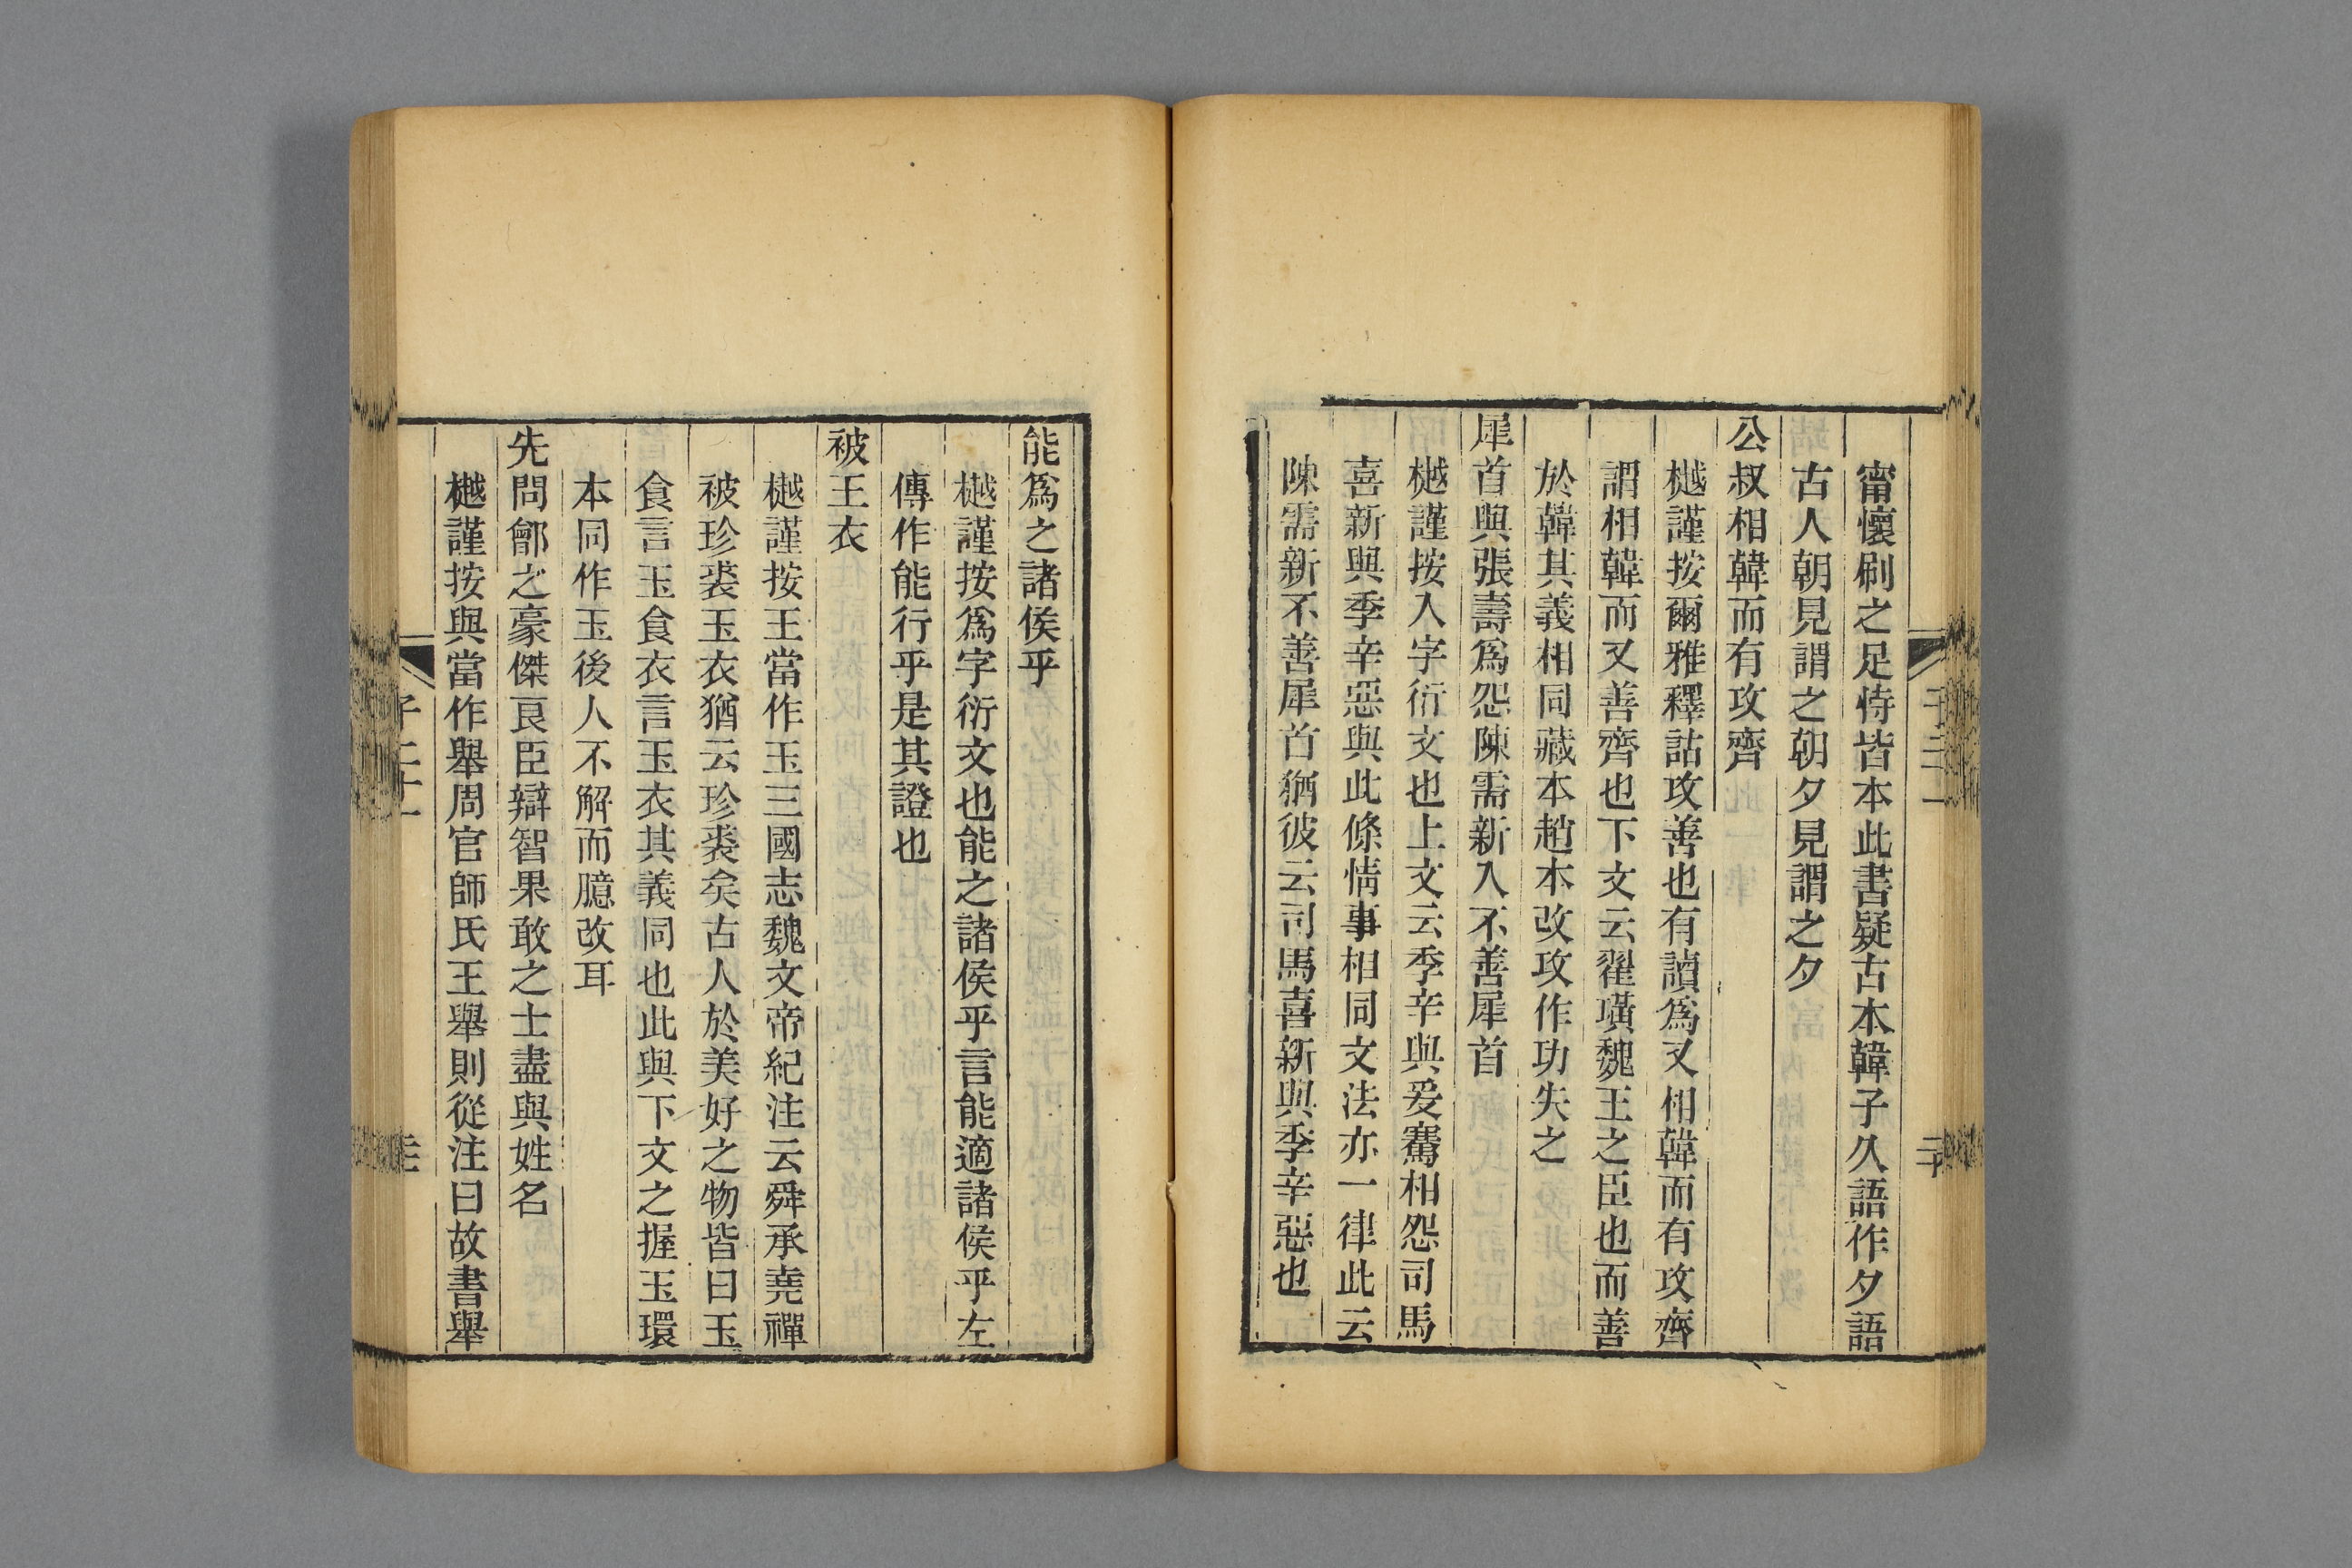 甯懷刷之足恃皆本此書疑古本韓子久語作夕語
古人朝見謂之朝夕見謂之夕
公叔相韓而有攻齊
樾謹按爾雅釋詁攻善也有讀爲又相韓而有攻齊
謂相韓而又善齊也下文云翟璜魏王之臣也而善
於韓其義相同藏本趙本改攻作功失之
犀首與張壽爲怨陳需新入不善犀首
樾謹按入字衍文也上文云季辛與爰騫相怨司馬
喜新與季辛惡與此條情事相同文法亦一律此云
陳需新不善犀首猶彼云司馬喜新與季辛惡也
能爲之諸侯乎
樾謹按爲字衍文也能之諸侯乎言能適諸侯乎左
傳作能行乎是其證也
被王衣
樾謹按王當作玉三國志魏文帝紀注云舜承堯禪
被珍裘玉衣猶云珍裘矣古人於美好之物皆曰玉
食言玉食衣言玉衣其義同也此與下文之握玉環
本同作玉後人不解而臆改耳
先問鄶之豪傑良臣辯智果敢之士盡與姓名
樾謹按與當作舉周官師氏王舉則從注曰故書舉
子二十一